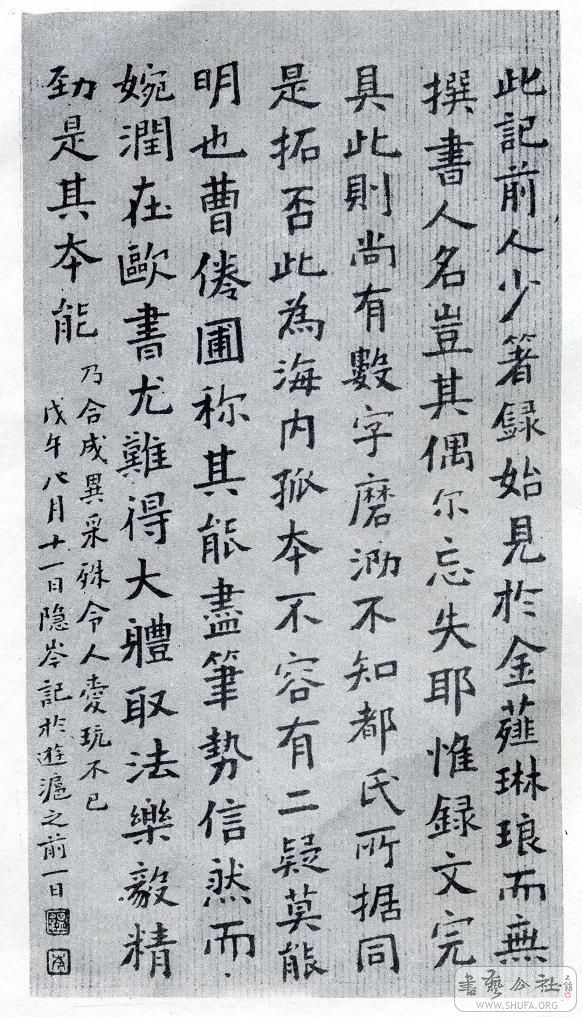 此記前人少箸録始見於金薤琳琅而無
撰書人名豈其偶尔忘失耶惟録文完
具此則尚有數字磨泐不知都氏所据同
是拓否此為海内孤本不容有二疑莫能
明也曹倦圃称其能盡筆勢信然而
婉潤在歐書尤難得大體取法樂毅精
勁是其本能
乃合成異采殊令人愛玩不已
戊午八月十一日隐岑記於遊滬之前一日
書藝公社
WWW.SHUFA.ORG